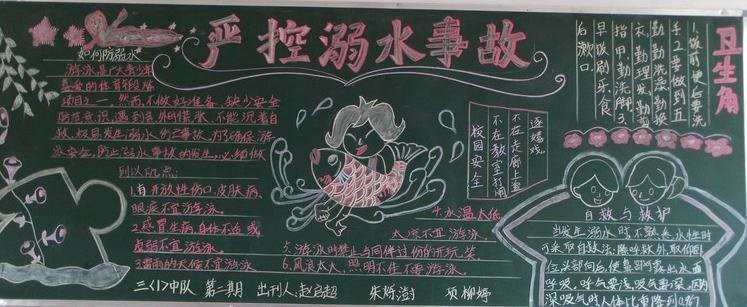 严控溺水事故
如何防溺水
游泳是广大青少年
喜爱的体育锻炼
项目之一,然而,不做好准备、缺少安全
防范意识,遇到意外时慌张、不能沉着自
救,极易发生溺水伤亡事故,为了确保游
泳安全,防止溺水事故的发生,必须做
到以下几点:
1.有开放性伤口、皮肤病、
眼疾不宜游泳。
2.感冒生病、身体不适或
虚弱不宜游泳。
3.雷雨的天候不宜游泳
4.水温太低
太凉不宜游泳。
5.游泳时禁止与同伴过份的开玩笑。
6.风浪太大、照明不佳不要游泳。
三〈1〉中队 第二期 出刊人:赵启超 朱烁澍 项柳婷
校园安全
不在教室打闹
不在走廊上追
逐嬉戏。
卫生角
1.饭前便后要洗
手 2.要做到五
勤:勤洗澡勤换
衣,勤理发勤剪
指甲,勤洗脚3.
早晚刷牙,食
后漱口。
自救与救护
当发生溺水时,不熟悉水性时
可采取自救法:除呼救外,取仰卧
位,头部向后,使鼻部可露出水面
呼吸。呼气要浅,吸气要深。因为
深吸气时,人体比重降到